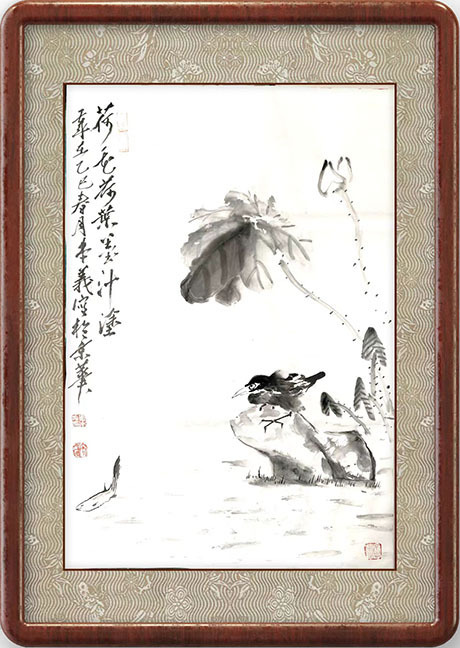 荷花荷葉墨汁塗
歲在乙巳春月義寫於京華